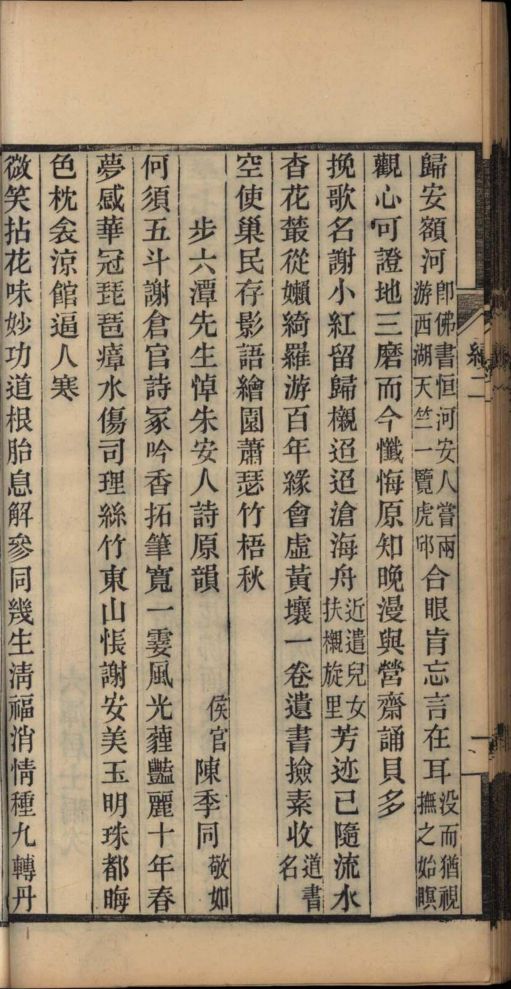 歸安額河卽佛書恒河安人嘗兩游西湖天竺一覽虎邱合眼肯忘言在耳没而猶視撫之始瞑
觀心可證地三磨而今懺悔原知晚漫與營齋誦貝多
挽歌名謝小紅留歸櫬迢迢滄海舟近遣兒女扶櫬旋里芳迹已隨流水
杳花叢從嬾綺羅游百年緣會虛黃壤一卷遺書撿素收道書名
空使巢民存影語繪園蕭瑟竹梧秋
步六潭先生悼朱安人詩原韻
侯官陳季同敬如
何須五斗謝倉官詩冢吟香拓筆寬一霎風光蘳豔麗十年春
夢感華冠琵琶瘴水傷司理絲竹東山悵謝安美玉明珠都晦
色枕衾涼館逼人寒
微笑拈花味妙功道根胎息解參同幾生淸福消情種九轉丹
編二